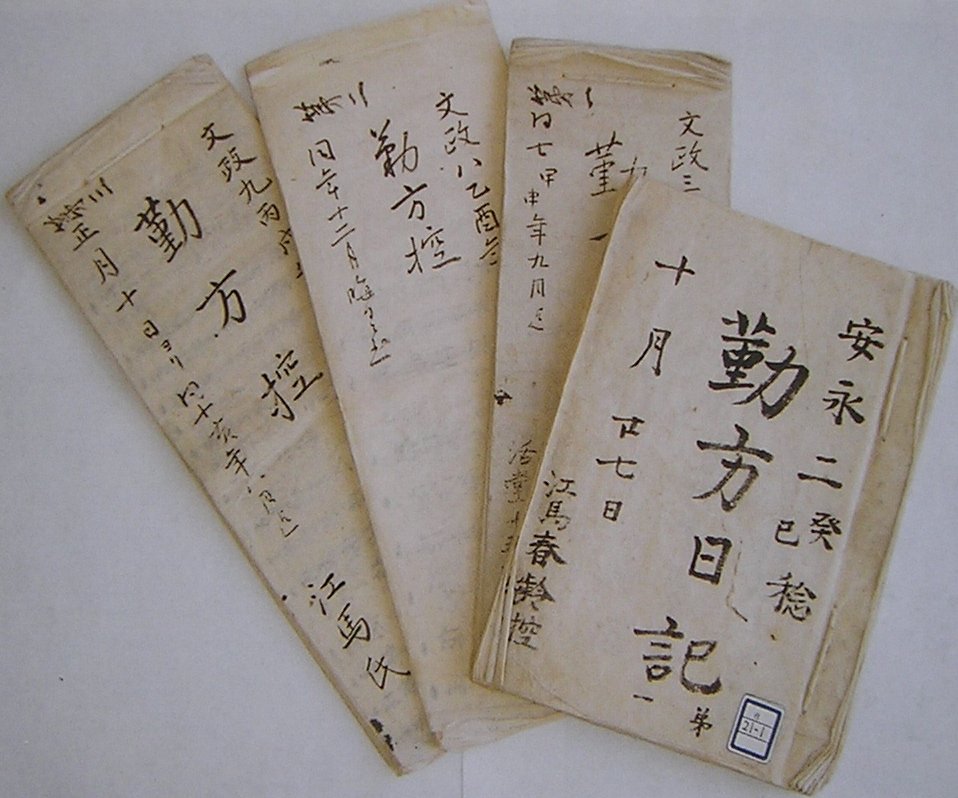 安永二癸巳稔
勤方日記
第一
十月廿七日
江馬春齢控
21-1
文政三
菫
同七甲申年九月迄
文政八乙酉年
勤方控
同年十二月晦日迄
文政九丙戌
勤方控
正月十日ヨリ同十亥年八月迄
江馬氏